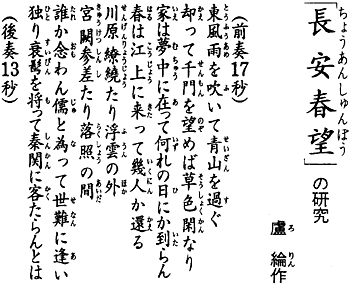 「長安春望」の研究
盧綸作
(前奏17秒)
東風雨を吹いて青山を過ぐ
却って千門を望めば草色閑なり
家は夢中に在って何れの日にか到らん
春は江上に来って幾人か還る
川原繚繞たり浮雲の外
宮闕参差たり落照の間
誰か念わん儒と為って世難に逢い
独り衰鬢を将って秦関に客たらんとは
(後奏13秒)